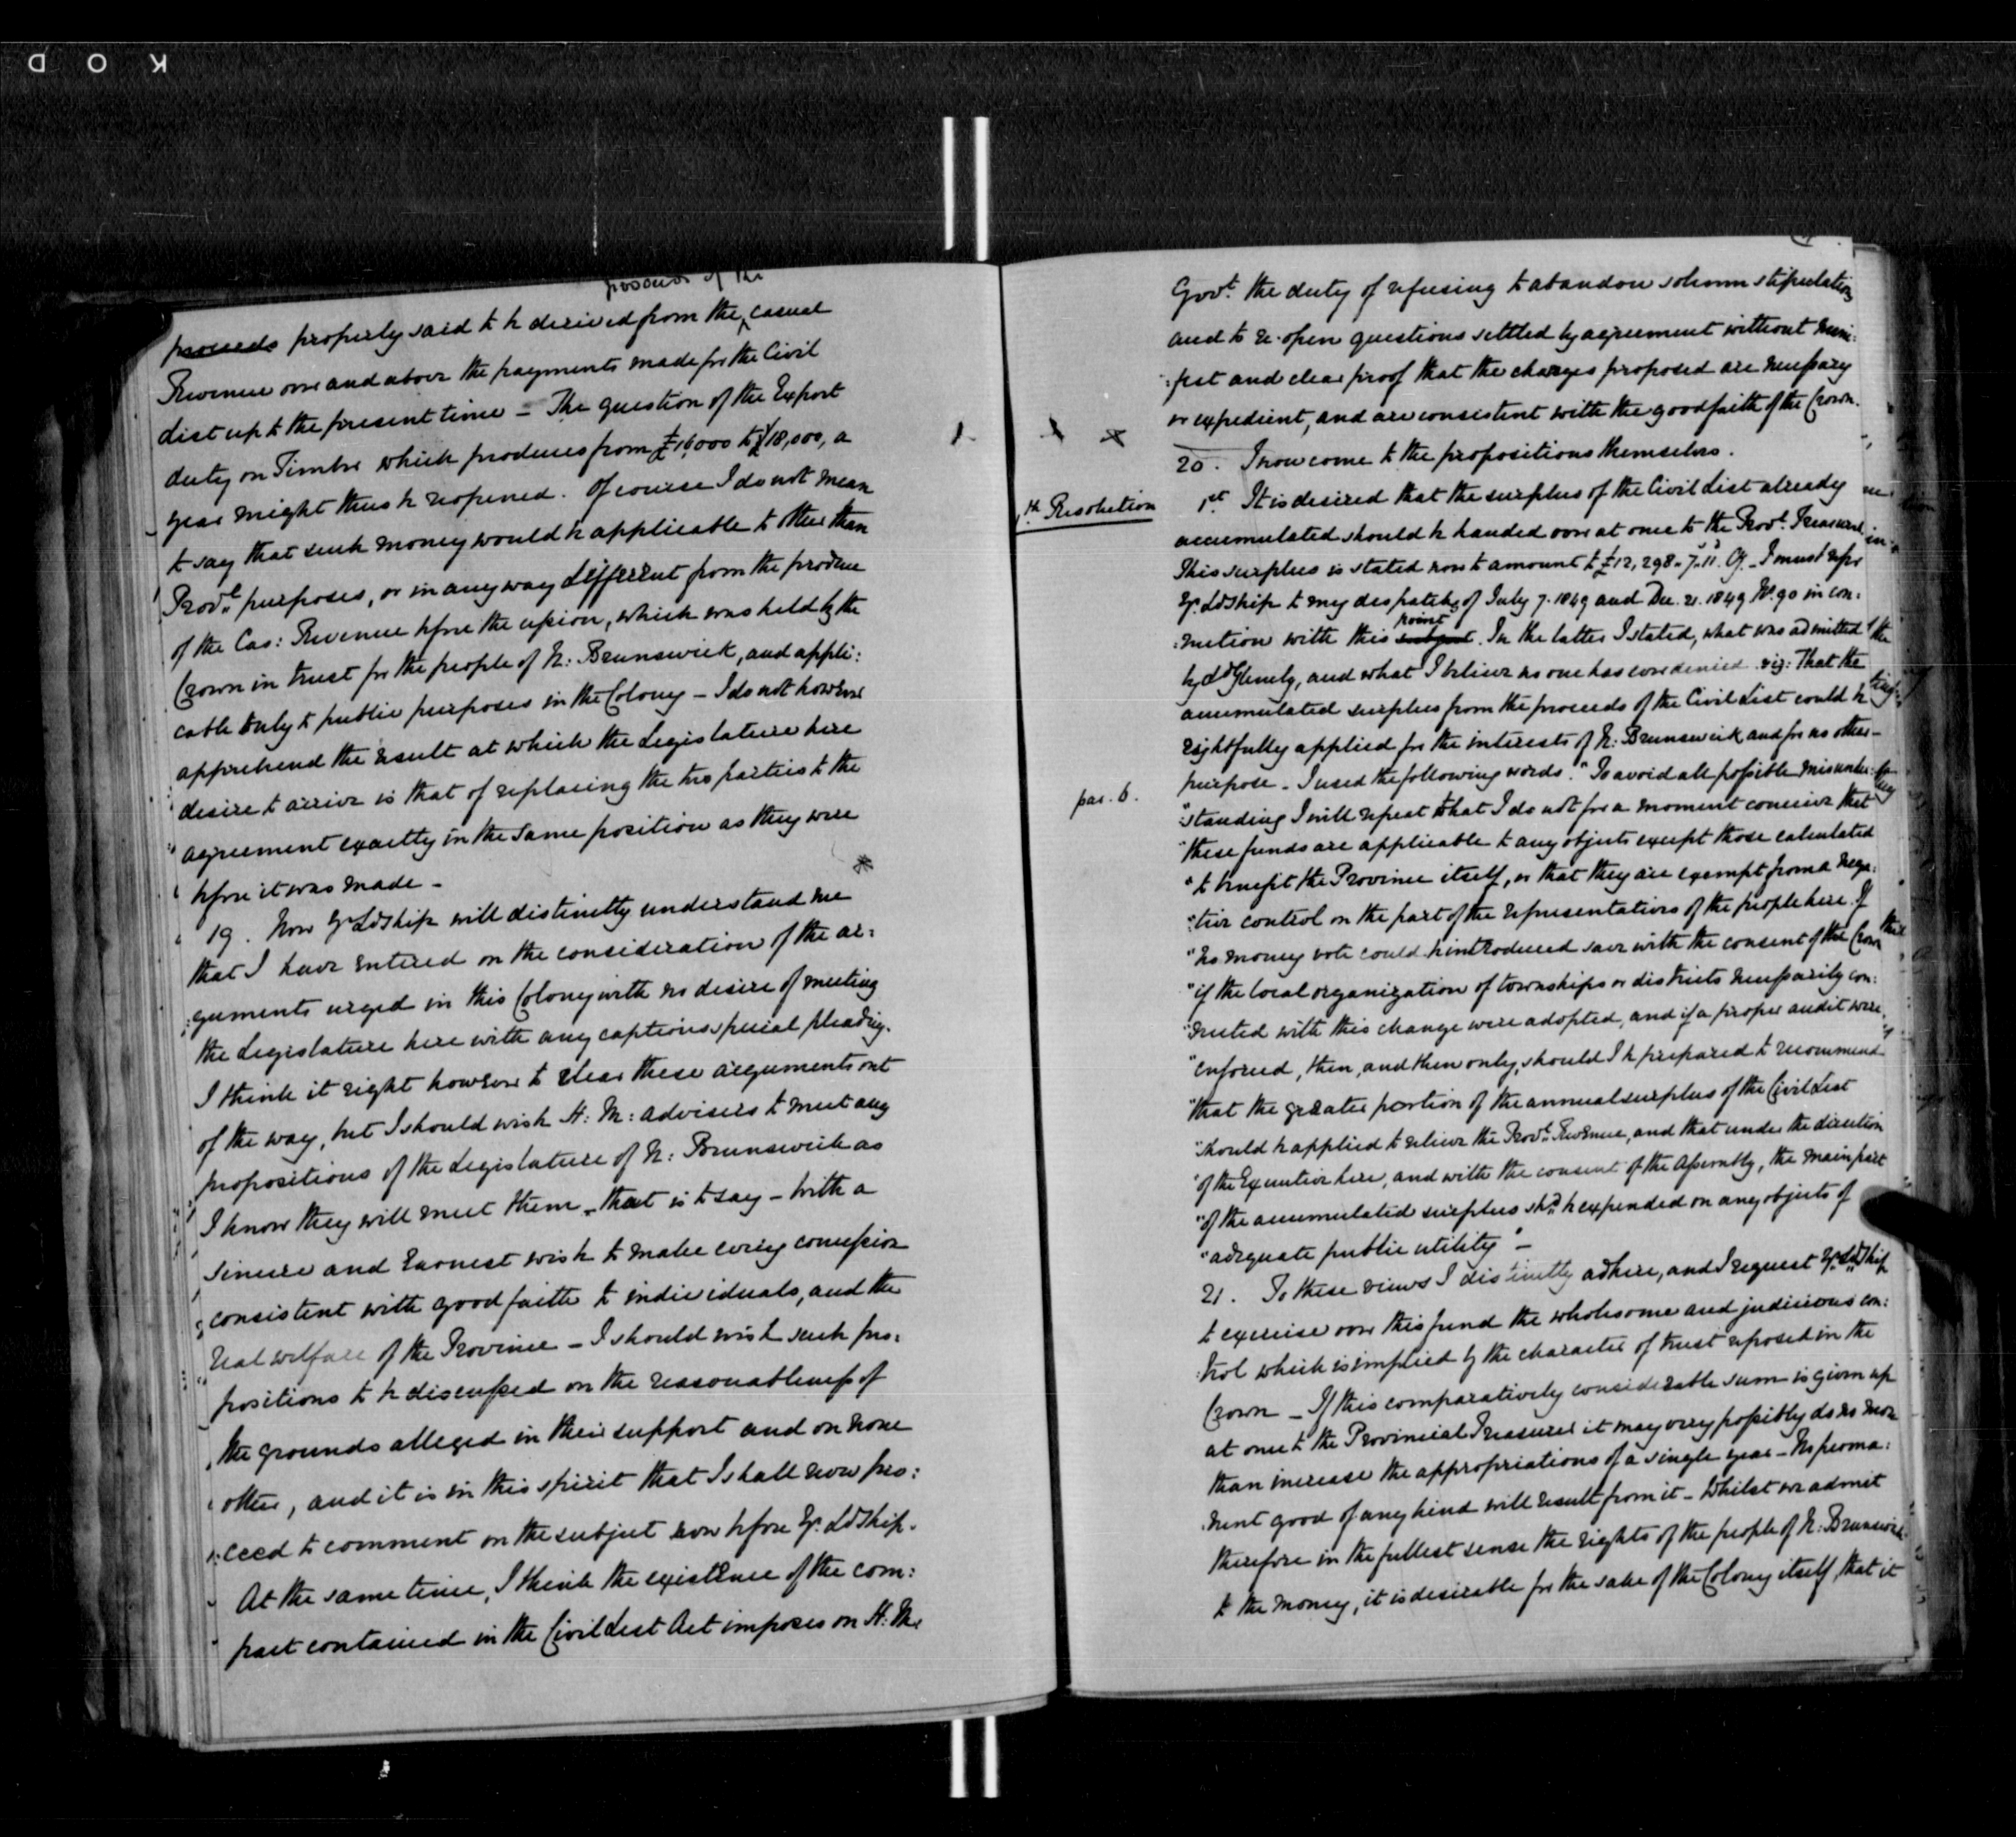 KOD
proceeds of the
proceeds properly said to be derived from the casual
Revenue over and above the payments made for the Civil
List up to the present time - The question of the Export
duty on Timber which produces from £16,000 to £18,000, a
year might thus be reopened. Of course I do not mean
to say that such money would be applicable to other than
Provl. purposes, or in any way different from the produce
of the Cas: Revenue before the cession, which was held by the
Crown in trust for the people of N: Brunswick, and appli:
cable only to public purposes in the Colony - I do not however
apprehend the result at which the Legislature here
desire to arrive is that of replacing the two parties to the
agreement exactly in the same position as they were
before it was made -
19. Now Yr Ldship will distinctly understand me
that I have entered on the consideration of the ar:
:guments urged in this Colony with no desire of meeting
the Legislature here with any captious special pleading.
I think it right however to clear these arguments out
of the way, but I should wish H: M: advisers to meet any
propositions of the Legislature of N: Brunswick as
I know they will meet them - that is to say - with a
sincere and earnest wish to make every concession
consistent with good faith to individuals, and the
real welfare of the Province - I should wish such pro:
positions to be discussed on the reasonableness of
the grounds alleged in their support and on none
other, and it is in this spirit that I shall now pro:
:ceed to comment on the subject now before Yr. Ldship.
At the same time, I think the existence of the com:
pact contained in the Civil List Act imposes on H: M:
Govt. the duty of refusing to abandon solemn stipulations
and to re-open questions settled by agreement without mani:
:fest and clear proof that the changes proposed are necessary
or expedient, and are consistent with the good faith of the Crown.
20. I now come to the propositions themselves.
Resolution
1st It is desired that the surplus of the Civil List already
accumulated should be handed over at once to the Provl. Treasurer
This surplus is stated now to amount to £12,298. 7. 11. Cy. - I must refer
Yr. Ldship to my despatches of July 7. 1849 and Dec. 21. 1849 No. 90 in con:
:nection with this subject point. In the latter I stated, what was admitted
by Ld Glenelg, and what I believe no one has ever denied viz: That the
accumulated surplus from the proceeds of the Civil List could be
rightfully applied for the interests of N: Brunswick and for no other
purpose - I used the following words. "To avoid all possible misunder:
par. 6.
"standing I will repeat that I do not for a moment conceive that
"these funds are applicable to any objects except those calculated
"to benefit the Province itself, or that they are exempt from a nega:
":tive control on the part of the representatives of the people here. If
"no money vote could be introduced save with the consent of the Crown
"if the local organization of townships or districts necessarily con:
":nected with this change were adopted, and if a proper audit were
"enforced, then, and then only, should I be prepared to recommend
"that the greater portion of the annual surplus of the Civil List
"should be applied to relieve the Provl. Revenue, and that under the direction
"of the Executive here, and with the consent of the Assembly, the main part
"of the accumulated surplus shd. be expended on any objects of
"adequate public utility" -
21. To these views I distinctly adhere, and I request Yr. Ldship
to exercise over this fund the wholesome and judicious con:
:trol which is implied by the character of trust reposed in the
Crown - If this comparatively considerable sum is given up
at once to the Provincial Treasurer it may very possibly do no more
than increase the appropriations of a single year - No perma:
:nent good of any kind will result from it - Whilst we admit
therefore in the fullest sense the rights of the people of N: Brunswick
to the money, it is desirable for the sake of the Colony itself, that it